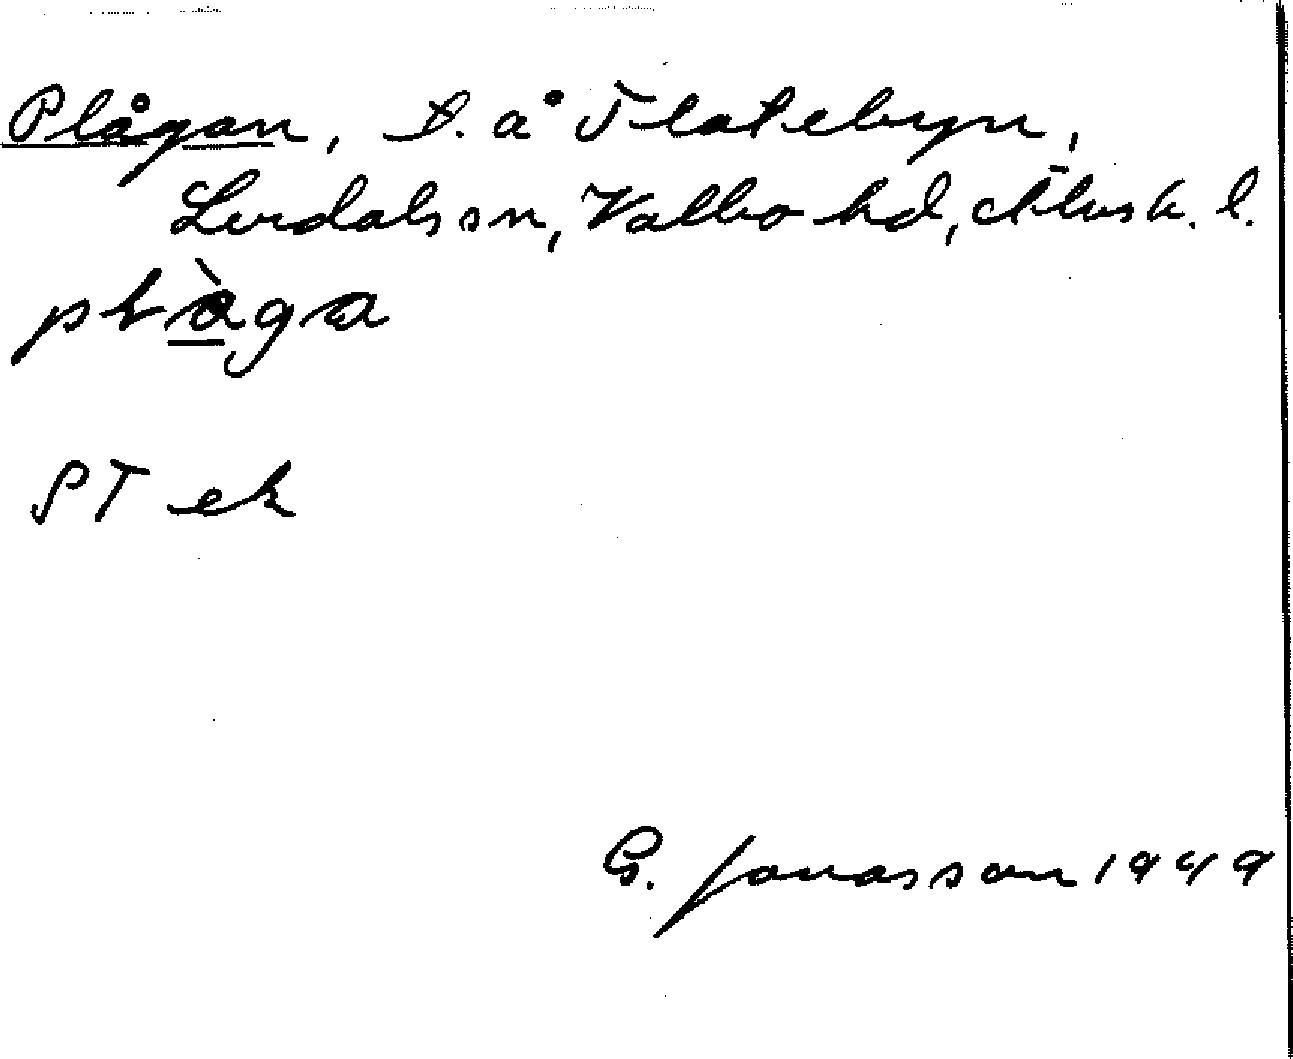 Plågan, t. å Flatebyn,
Lerdals sn, Valbo hd, Älvsb. l.
plåga
ST ek
G. Jonasson 1949